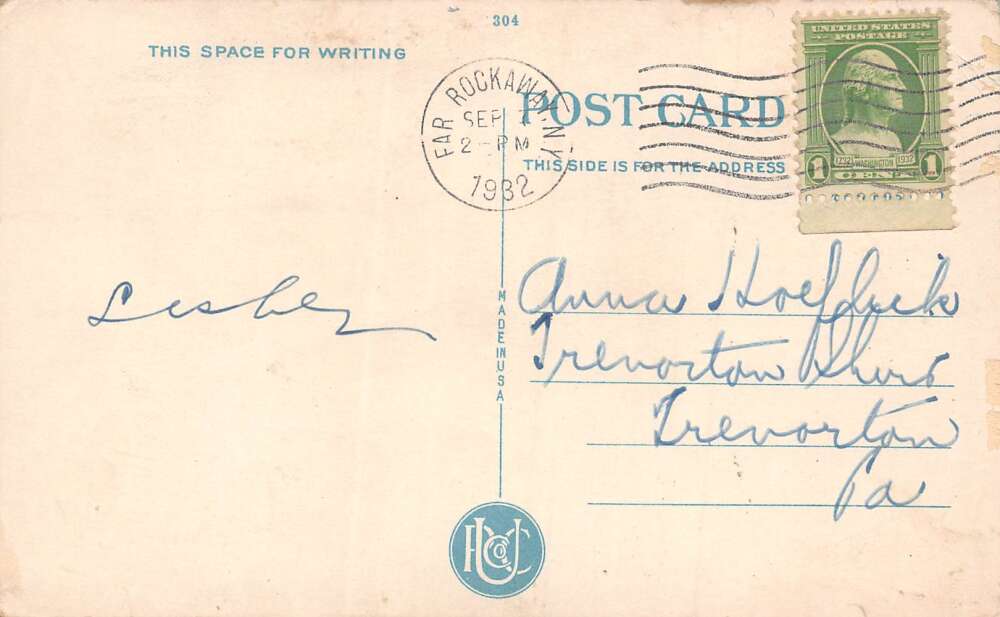 304
THIS SPACE FOR WRITING
FAR ROCKAWAY N.Y.
SEP
2-PM
1932
POST CARD
THIS SIDE IS FOR THE ADDRESS
UNITED STATES
POSTAGE
1732 WASHINGTON 1932
1 CENT 1
Anna
Trevorton
Trevorton
Pa
MADE IN USA